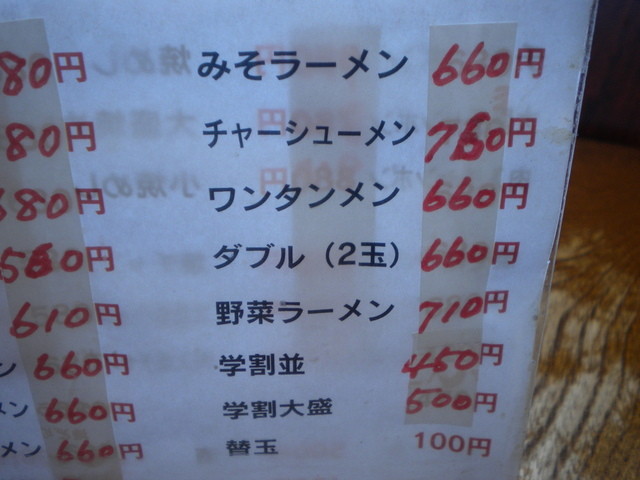 80円 みそラーメン 660円
80円 チャーシューメン 760円
680円 ワンタンメン 660円
560円 ダブル（2玉） 660円
610円 野菜ラーメン 710円
ン 660円 学割並 450円
メン 660円 学割大盛 500円
メン 660円 替玉 100円